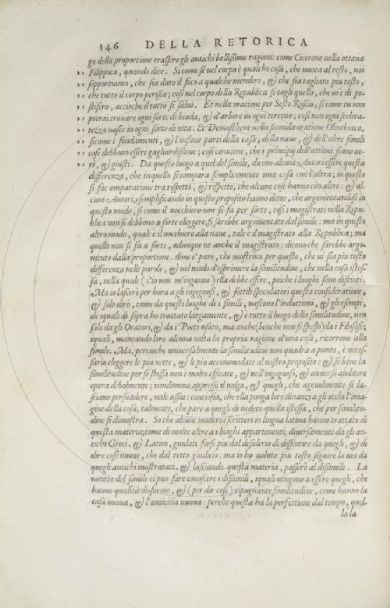 146 DELLA RETORICA
go della proportione trassero gli antichi bellissime ragioni: come Cicerone nella ottaua
Filippica, quando dice. Si come se nel corpo è qualche cosa, che nuoca al resto, noi
sopportiamo, che sia dato il foco a qualche membro, & che sia tagliato piu tosto,
che tutto il corpo perisca; così nel corpo della Republica si tagli quello, che vi è di pe-
stifero, accioche il tutto si salui. Et nella oratione per Sesto Roscio, si come tu non
potrai trouare ogni sorte di biada, & d'arbore in ogni terreno, così non ogni scelera-
tezza nasce in ogni sorte di vita. Et Demosthene nella seconda oratione Olinthica,
sicome i fondamenti, & l'infime parti della casa, della naue, & dell'altre simili
cose debbono essere gagliardissime; così conuiene, che i principij dell'attioni siano ue-
ri, & giusti. Da questo luogo a quel del simile, danno alcuni Autori essere questa
differenza, che in quello si compara semplicemente una cosa con l'altra; in questo
si fa comparatione tra rispetto, & rispetto, che alcune cose hanno con altre: & al-
cuni Autori, esemplificando in questo proposito hanno detto, che argomentandosi in
questo modo, si come il nocchiero non si fa per sorte, così i magistrati nella Repu-
blica non si debbono a sorte eleggere, si sarebbe argomentato dal simile: ma in questo
altro modo, quale è il nocchiero alla naue, tale è il magistrato alla Republica; ma
quello non si fa a sorte, adunque ne anche il magistrato: dicono che sarebbe argo-
mento dalla proportione. doue e' pare, che mostrino per questo, che ui sia piu tosto
differenza nelle parole, & nel modo d'esprimere la similitudine, che nella cosa istes-
sa, nella quale (s'io non m'inganno) ella debbe essere, poiche i luoghi sono distinti.
Ma io lascerò per hora a gli ingegnosi, & sottili speculatori questa consideratione,
& solo dirò, come da questi luoghi de i simili, nascono l'induttioni, & gli esempi,
de iquali di sopra ho trattato largamente, & è tutto il luogo della similitudine, non
solo da gli Oratori, & da i Poeti usato, ma anche (benche non sì spesso) da i Filosofi;
iquali, mancando loro alcuna uolta la propria ragione d'una cosa, ricorrono alla
simile. Ma, percioche uniuersalmente la similitudine non quadra a punto, è neces-
sario eleggere le piu uere, & le piu accommodate al nostro proposito: & se bene la
similitudine per se stessa non è molto efficace, & nell'ingegnosi, & auuertiti ascoltatori
opera debolmente; nondimeno appresso il uolgo, & quegli, che ageuolmente si la-
sciano persuadere, uale assai: conciosia, che ella ponga loro dinanzi a gli occhi l'ima-
gine della cosa, talmente, che pare a quegli di uedere quella istessa, che per similitu-
dine si dimostra. So che alcuni moderni scrittori in lingua latina hanno trattato di
questa materia; come di molte altre a i luoghi appartenenti; diuersamente da gli an-
tichi Greci, & Latini, guidati forse piu dal desiderio di dissentire da quegli, & di
dire cose nuoue, che dal retto giudicio. ma io ho uoluto piu tosto seguire la uia da
quegli antichi mostrataci. & lasciando questa materia, passerò al dissimile. La
notitia del simile ci puo fare conoscere i dissimili, iquali uengono a essere quegli, che
hanno qualità disforme, & (per dir così) ripugnante similitudine, come hanno la
casa nuoua, & l'amicitia nuoua: perche questa ha la perfettione dal tempo, quel-
la la